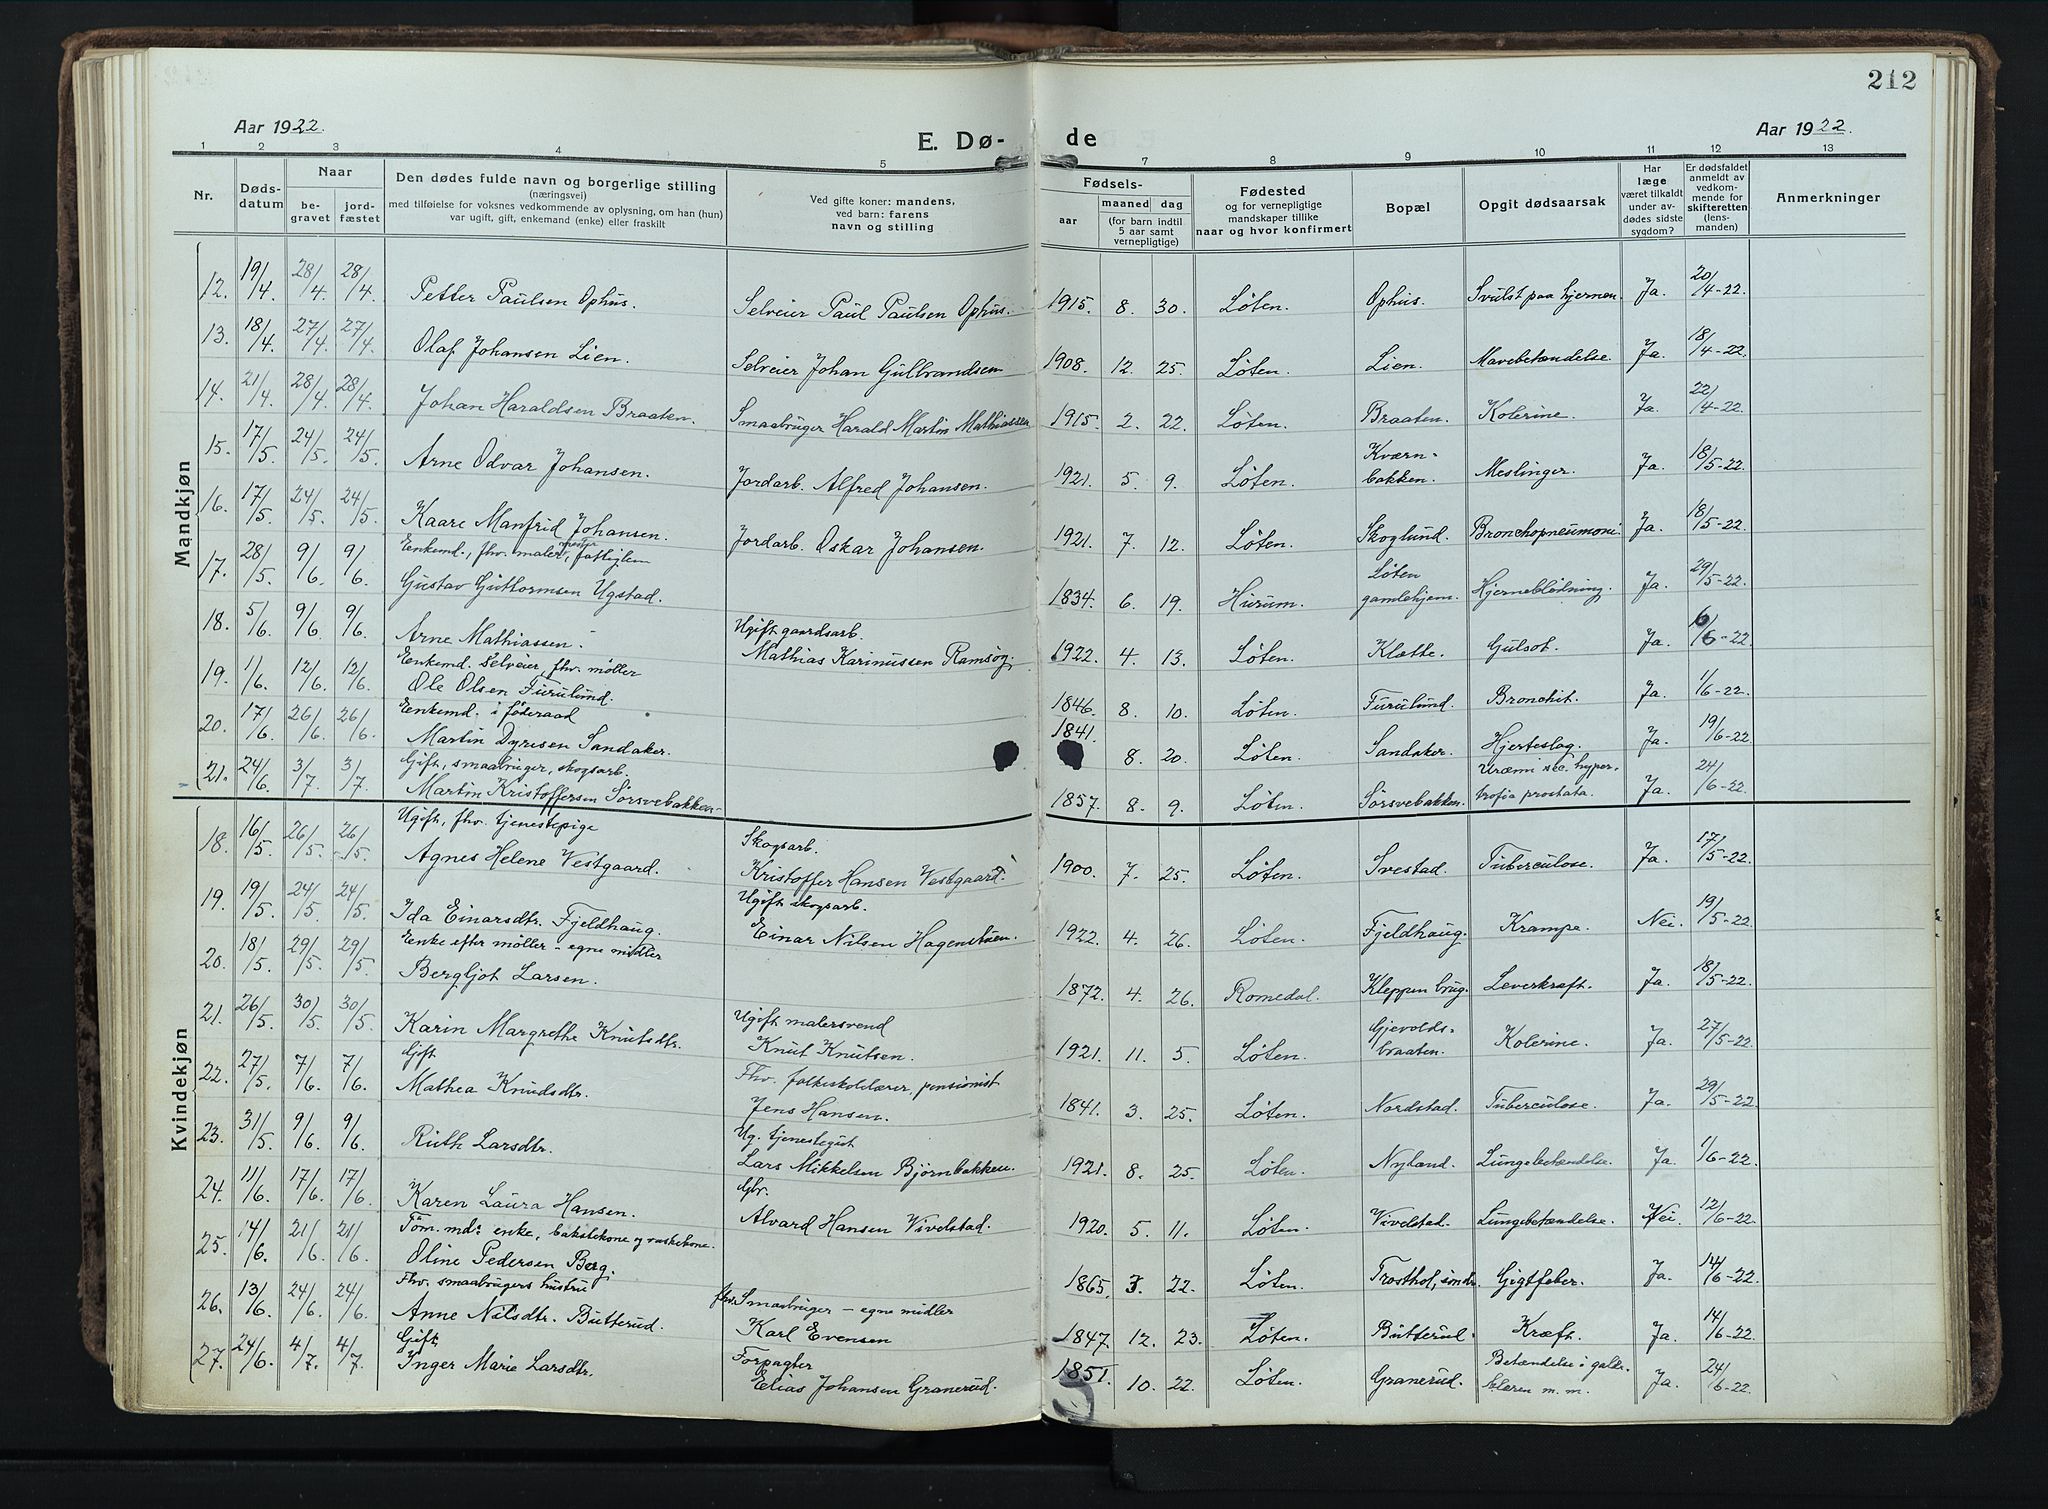 212
Aar 1922.
E. Dø-
de
Aar 1922.
1 2 3 4 5 7 8 9 10 11 12 13
Nr.
Døds-
datum
Naar
be-
gravet
jord-
fæstet
Den dødes fulde navn og borgerlige stilling
(næringsvei)
med tilføielse for voksnes vedkommende av oplysning, om han (hun)
var ugift, gift, enkemand (enke) eller fraskilt
Ved gifte koner: mandens,
ved barn: farens
navn og stilling
Fødsels-
aar
maaned dag
(for barn indtil
5 aar samt
vernepligtige)
Fødested
og for vernepligtige
mandskaper tillike
naar og hvor konfirmert
Bopæl
Opgit dødsaarsak
Har
læge
været tilkaldt
under av-
dødes sidste
sygdom?
Er dødsfaldet
anmeldt av
vedkom-
mende for
skifteretten
(lens-
manden)
Anmerkninger
Mandkjøn
12. 19/4 28/4 28/4 Petter Paulsen Ophus. Selveier Paul Paulsen Ophus. 1915. 8. 30. Løten. Ophus. Svulst paa hjernen. Ja. 20/4-22.
13. 18/4 27/4 27/4 Olaf Johansen Lien. Selveier Johan Gulbrandsen 1908. 12. 25. Løten. Lien. Mavebetændelse. Ja. 18/4-22.
14. 21/4 28/4 28/4 Johan Haraldsen Braaten. Smaabruger Harald Martin Mathiassen 1915. 2. 22. Løten. Braaten. Kolerine. Ja. 22/4-22.
15. 17/5 24/5 24/5 Arne Odvar Johansen. Jordarb. Alfred Johansen. 1921. 5. 9. Løten. Kværn-
bakken. Meslinger. Ja. 18/5-22.
16. 17/5 24/5 24/5 Kaare Manfrid Johansen. Jordarb. Oskar Johansen. 1921. 7. 12. Løten. Skoglund. Bronchopneumoni. Ja. 18/5-22.
Enkemd., fhv. maler, fattiglem
17. 28/5 9/6 9/6 Gustav Guttormsen Ugstad. 1834. 6. 19. Hurum. Løten
gamlehjem. Hjerneblødning. Ja. 29/5-22.
Ugift gaardsarb.
18. 5/6 9/6 9/6 Arne Mathiassen. Mathias Karinussen Ramsøg. 1922. 4. 13. Løten. Klætte. Gulsot. Ja. 6/6-22
Enkemd. selveier, fhv. møller
19. 1/6 12/6 12/6 Ole Olsen Furulund. 1846. 8. 10. Løten. Furulund. Bronchit. Ja. 1/6-22.
Enkemd. i føderaad
20. 17/6 26/6 26/6 Martin Dyresen Sandaker. 1841. 8. 20. Løten. Sandaker. Hjerteslag. Ja. 19/6-22.
Gift, smaabruger, skogsarb.
21. 24/6 3/7 3/7 Martin Kristoffersen Sørsvebakken 1857. 8. 9. Løten. Sørsvebakken. Uræmi sec. hyper-
trofia prostata. Ja. 24/6-22
Kvindekjøn
Ugift, fhv. tjenestepige Skogsarb.
18. 16/5 26/5. 26/5 Agnes Helene Vestgaard. Kristoffer Hansen Vestgaard. 1900. 7. 25. Løten. Svestad. Tuberculose. Ja. 17/5-22.
Ugift skogsarb.
19. 19/5 24/5 24/5 Ida Einarsdtr. Fjeldhaug. Einar Nilsen Hagenstuen. 1922. 4. 26. Løten. Fjeldhaug. Krampe. Nei. 19/5-22.
Enke efter møller – egne midler
20. 18/5 29/5 29/5 Bergljot Larsen. 1872. 4. 26. Romedal. Kleppen brug. Leverkræft. Ja. 18/5-22.
Ugift malersvend
21. 26/5 30/5 30/5 Karin Margrethe Knutsdtr. Knut Knutsen. 1921. 11. 5. Løten. Gjevolds-
braaten. Kolerine. Ja. 27/5-22.
Gift Fhv. folkeskolelærer, pensionist
22. 27/5 7/6 7/6 Mathea Knudsdtr. Jens Hansen. 1841. 3. 25. Løten. Nordstad. Tuberculose. Ja. 29/5-22.
Ug. tjenestegut
23. 31/5 9/6 9/6 Ruth Larsdtr. Lars Mikkelsen Bjørnbakken. 1921. 8. 25. Løten. Nyland. Lungebetændelse. Ja. 1/6-22.
Gbr.
24. 11/6 17/6 17/6 Karen Laura Hansen. Alvard Hansen Vivelstad. 1920. 5. 11. Løten. Vivelstad. Lungebetændelse. Nei. 12/6-22.
Tøm. mds enke, bakstekone og vaskekone.
25. 14/6 21/6 21/6 Oline Pedersen Berg. 1865. 3. 22. Løten. Trosthol, søndr. Gigtfeber. Ja. 14/6-22.
Fhv. smaabrugers hustru fhv. Smaabruger – egne midler
26. 13/6 24/6 24/6 Anne Nilsdtr. Butterud. Karl Evensen 1847. 12. 23. Løten. Butterud. Kræft. Ja. 14/6-22.
Gift Forpagter
27. 24/6 4/7 4/7 Inger Marie Larsdtr. Elias Johansen Granerud. 1851. 10. 22. Løten. Granerud. Betændelse i galde-
blæren m. m. Ja. 24/6-22